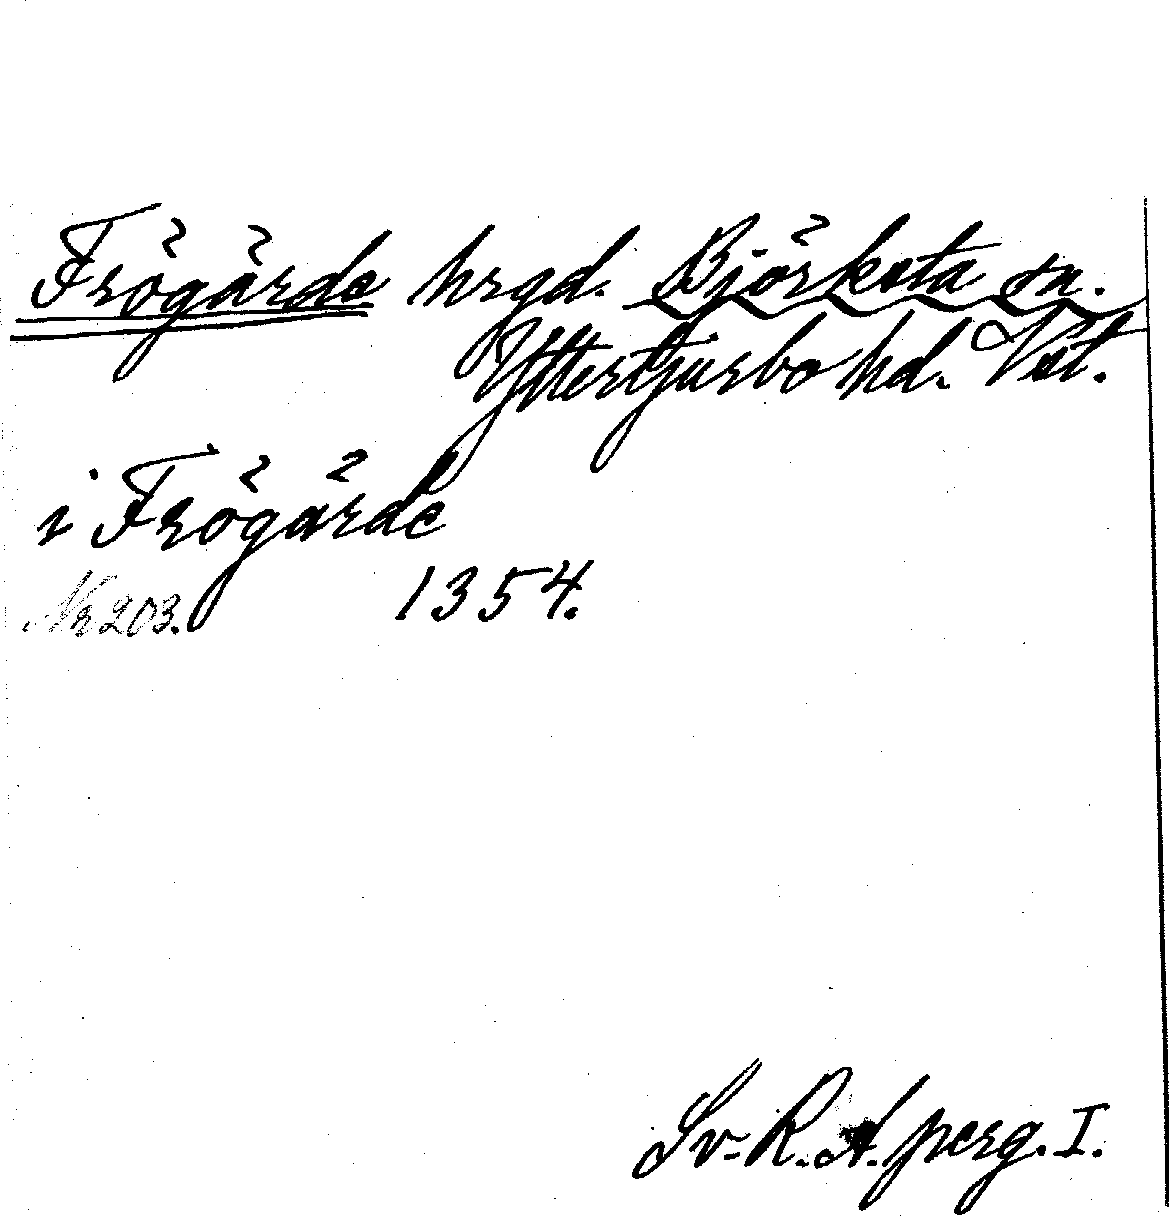 Frögärde hrgd. Björksta sn.
Yttertjurbo hd. Vstl.
i Frögärde
Nr 203. 1354.
Sv. R. A. perg. I.